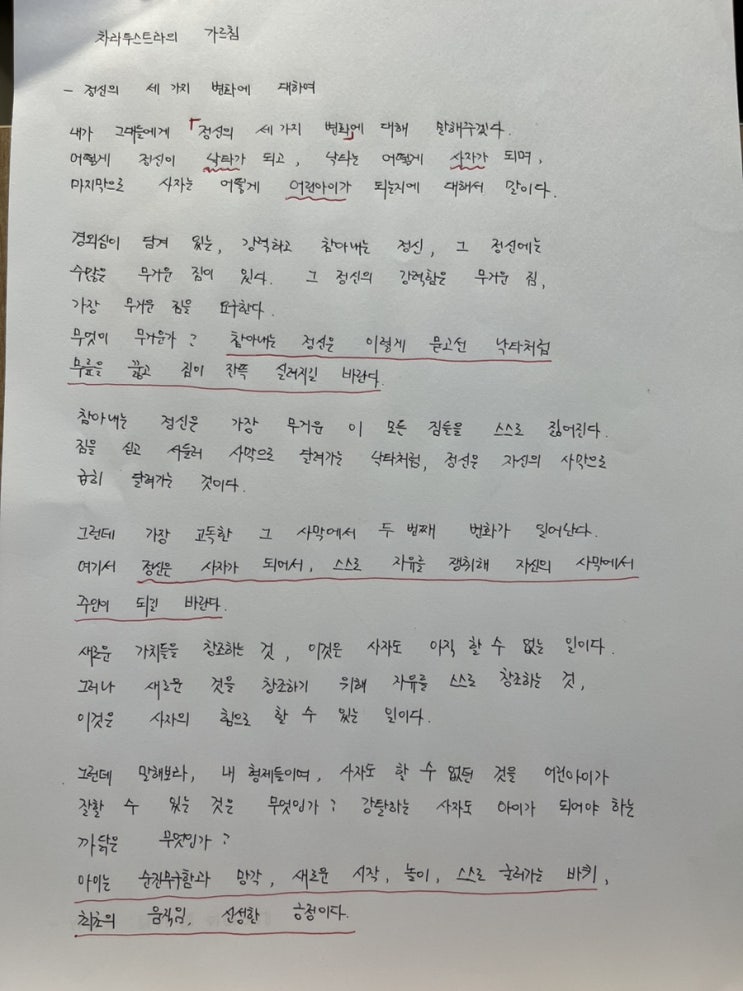 차라투스트라의 가르침
- 정신의 세 가지 변화에 대하여
내가 그대들에게 「정신의 세 가지 변화」에 대해 말해주겠다.
어떻게 정신이 낙타가 되고, 낙타는 어떻게 사자가 되며,
마지막으로 사자는 어떻게 어린아이가 되는지에 대해서 말이다.
경외심이 담겨 있는, 강력하고 참아내는 정신, 그 정신에는
수많은 무거운 짐이 있다. 그 정신의 강력함은 무거운 짐,
가장 무거운 짐을 요구한다.
무엇이 무거운가? 참아내는 정신은 이렇게 묻고선 낙타처럼
무릎을 꿇고 짐이 잔뜩 실려지길 바란다.
참아내는 정신은 가장 무거운 이 모든 짐들을 스스로 짊어진다.
짐을 싣고 서둘러 사막으로 달려가는 낙타처럼, 정신은 자신의 사막으로
급히 달려가는 것이다.
그런데 가장 고독한 그 사막에서 두 번째 변화가 일어난다.
여기서 정신은 사자가 되어서, 스스로 자유를 쟁취해 자신의 사막에서
주인이 되길 바란다.
새로운 가치들을 창조하는 것, 이것은 사자도 아직 할 수 없는 일이다.
그러나 새로운 것을 창조하기 위해 자유를 스스로 창조하는 것,
이것은 사자의 힘으로 할 수 있는 일이다.
그런데 말해보라, 내 형제들이여, 사자도 할 수 없던 것을 어린아이가
잘할 수 있는 것은 무엇인가? 강탈하는 사자도 아이가 되어야 하는
까닭은 무엇인가?
아이는 순진무구함과 망각, 새로운 시작, 놀이, 스스로 굴러가는 바퀴,
최초의 움직임, 신성한 긍정이다.